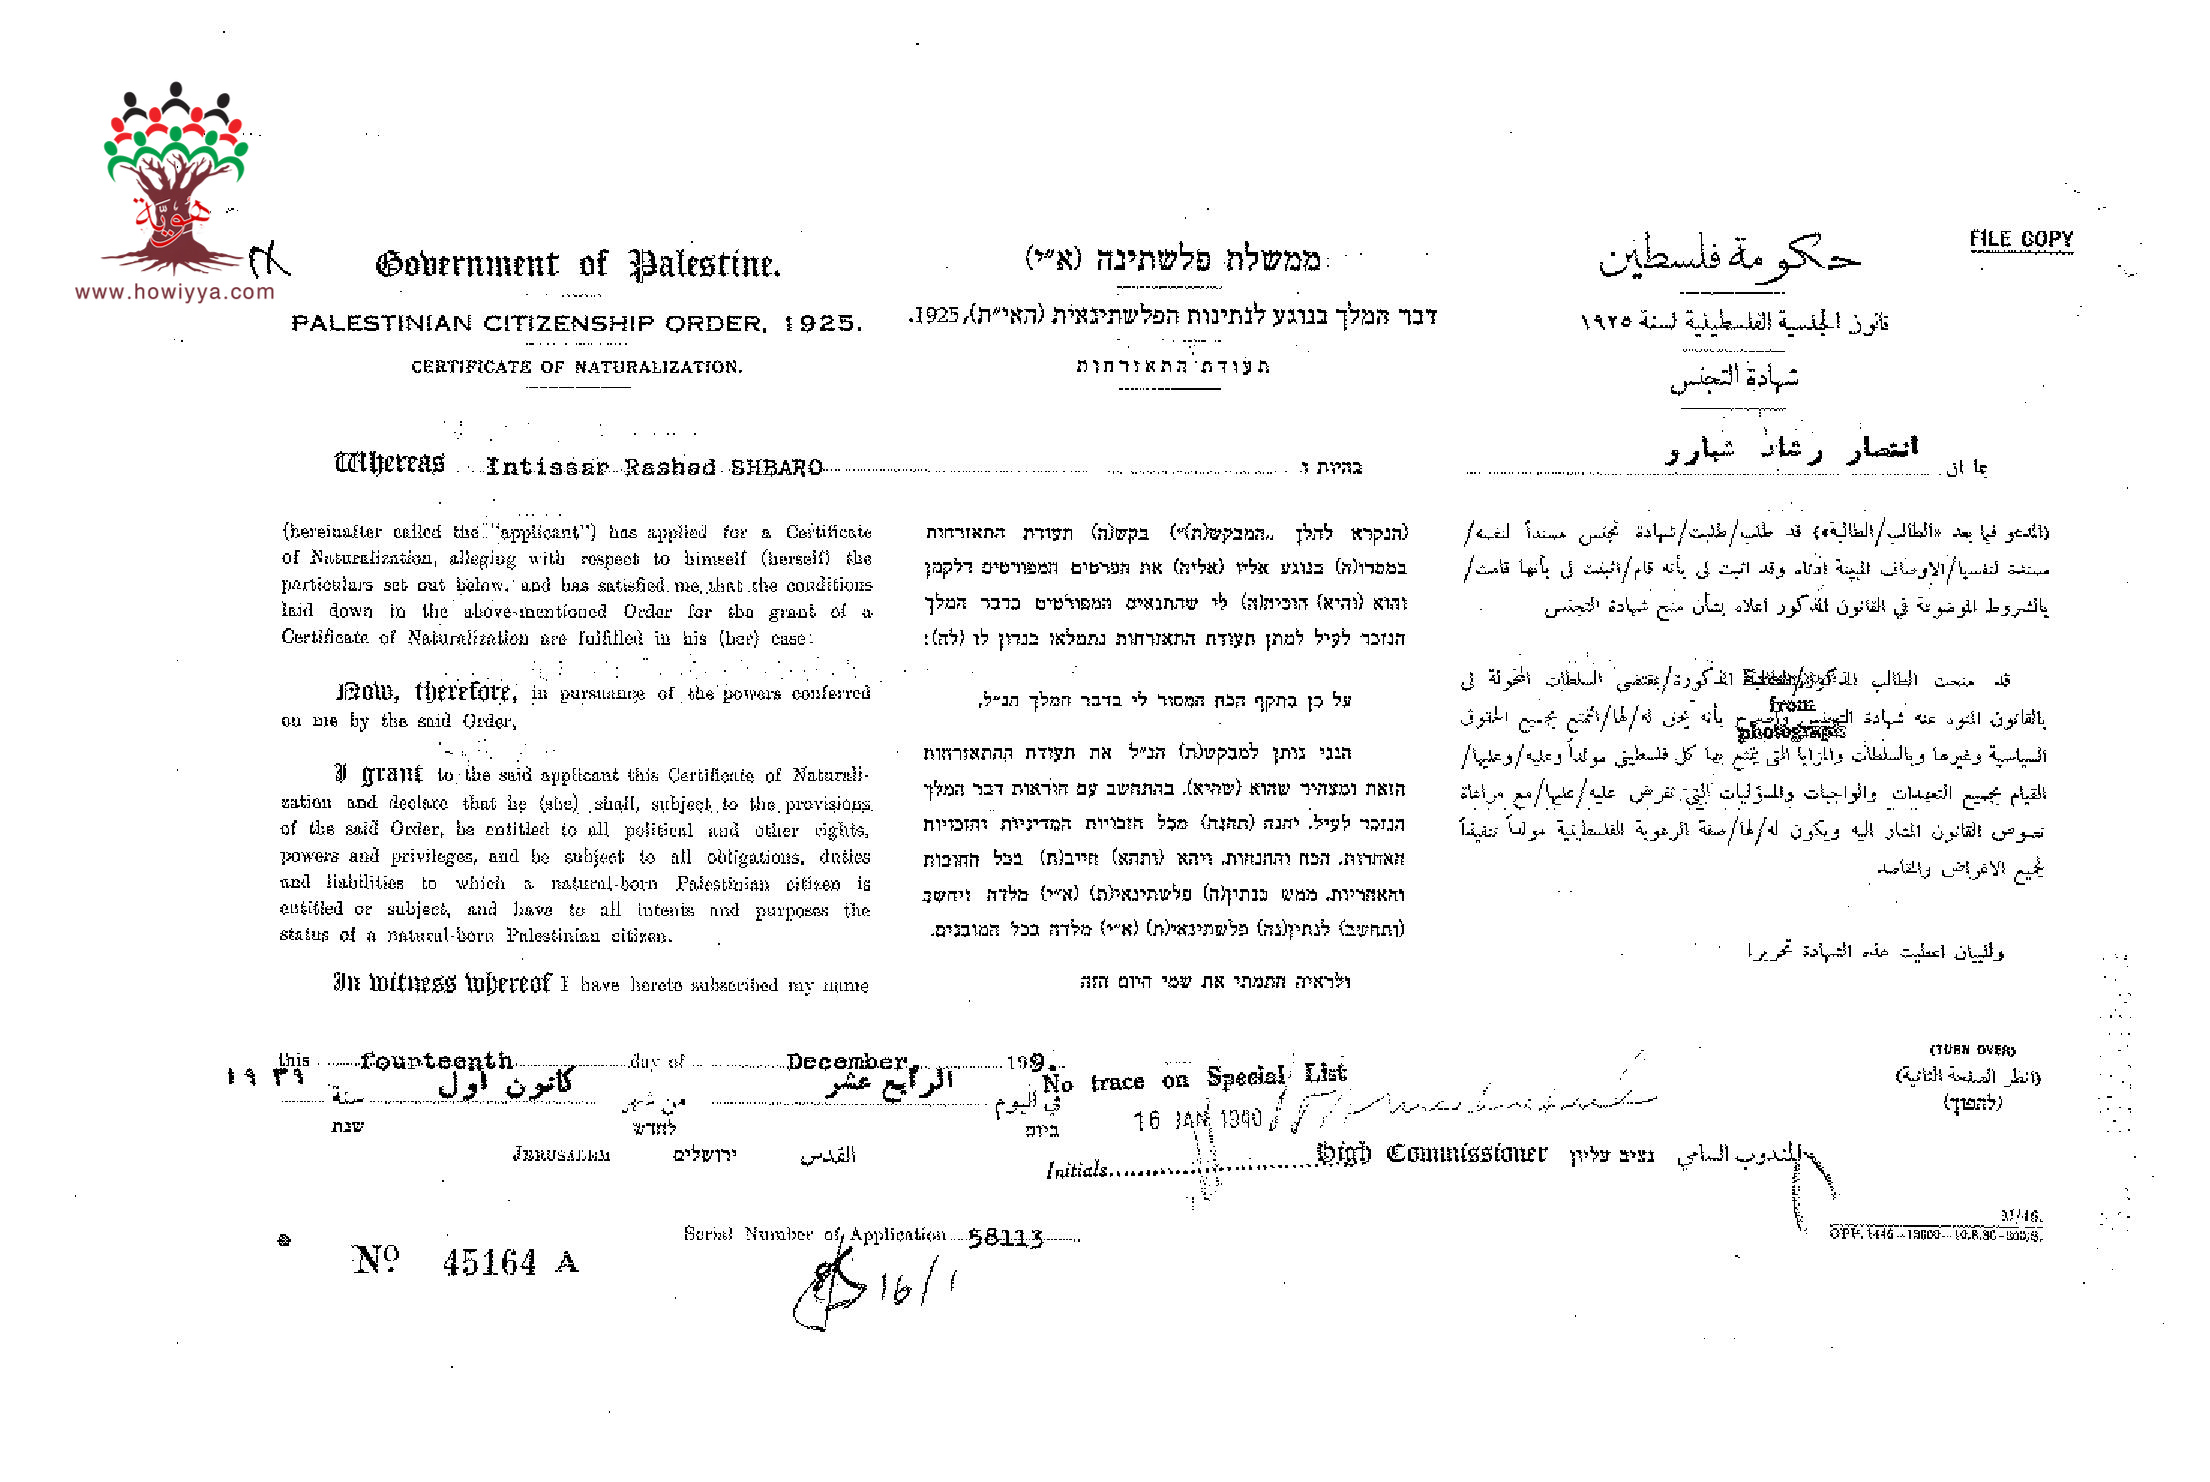 هوية
www.howiyya.com
FILE COPY
Government of Palestine.
PALESTINIAN CITIZENSHIP ORDER, 1925.
CERTIFICATE OF NATURALIZATION.
Whereas Intissar Rashad SHBARO
(hereinafter called the "applicant") has applied for a Certificate
of Naturalization, alleging with respect to himself (herself) the
particulars set out below, and has satisfied me, that the conditions
laid down in the above-mentioned Order for the grant of a
Certificate of Naturalization are fulfilled in his (her) case:
Now, therefore, in pursuance of the powers conferred
on me by the said Order,
I grant to the said applicant this Certificate of Naturali-
zation and declare that he (she) shall, subject to the provisions
of the said Order, be entitled to all political and other rights,
powers and privileges, and be subject to all obligations, duties
and liabilities to which a natural-born Palestinian citizen is
entitled or subject, and have to all intents and purposes the
status of a natural-born Palestinian citizen.
In witness whereof I have hereto subscribed my name
ממשלת פלשתינה (א״י)
דבר המלך בנוגע לנתינות הפלשתינאית (האי״ת), 1925.
תעודת התאזרחות
בהיות ו
(הנקרא להלן „המבקש(ת)״) בקש(ה) תעודת התאזרחות
במסרו(ה) בנוגע אליו (אליה) את הפרטים המפורטים דלקמן
והוא (והיא) הוכיח(ה) לי שהתנאים המפורטים בדבר המלך
הנזכר לעיל למתן תעודת התאזרחות נתמלאו בנדון לו (לה):
על כן בתקף הכח המסור לי בדבר המלך הנ״ל,
הנני נותן למבקש(ת) הנ״ל את תעודת ההתאזרחות
הזאת ומצהיר שהוא (שהיא), בהתחשב עם הוראות דבר המלך
הנזכר לעיל, יהנה (תהנה) מכל הזכויות המדיניות והזכויות
האחרות, הכח וההנחות, ויהא (ותהא) חייב(ת) בכל החובות
והאחריות, ממש כנתין(ה) פלשתינאי(ת) (א״י) מלדה ויחשב
(ותחשב) לנתין(נה) פלשתינאי(ת) (א״י) מלדה בכל המובנים.
ולראיה חתמתי את שמי היום הזה
حكومة فلسطين
قانون الجنسية الفلسطينية لسنة ١٩٢٥
شهادة التجنس
بما ان انتصار رشاد شبارو
(المدعو فيما بعد «الطالب/الطالبة») قد طلب/طلبت/شهادة تجنس مسنداً لنفسه/
مسندة لنفسها/الاوصاف المبينة ادناه وقد اثبت لي بأنه قام/اثبتت لي بأنها قامت/
بالشروط الموضوعة في القانون المذكور اعلاه بشأن منح شهادة التجنس
قد منحت الطالب المذكور/ المذكورة/بمقتضى السلطات المخولة لي
from
photograph
بالقانون المنوه عنه شهادة التجنس واصرح بأنه يحق له/لها/التمتع بجميع الحقوق
السياسية وغيرها وبالسلطات والمزايا التي يتمتع بها كل فلسطيني مولداً وعليه/وعليها/
القيام بجميع التعهدات والواجبات والمسؤليات التي تفرض عليه/عليها/مع مراعاة
نصوص القانون المشار اليه ويكون له/لها/صفة الرعوية الفلسطينية مولداً تنفيذاً
لجميع الاغراض والمقاصد
وللبيان اعطيت هذه الشهادة تحريرا
this fourteenth day of December, 199.
١٩٣٩ سنة كانون اول من شهر الرابع عشر في اليوم
שנת לחדש ביום
JERUSALEM ירושלים القدس
No trace on Special List
16 JAN 1940
Initials
High Commissioner נציב עליון المندوب السامي
(TURN OVER)
(انظر الصفحة الثانية)
(להפוך)
Serial Number of Application 58113
16/1
Nº 45164 A